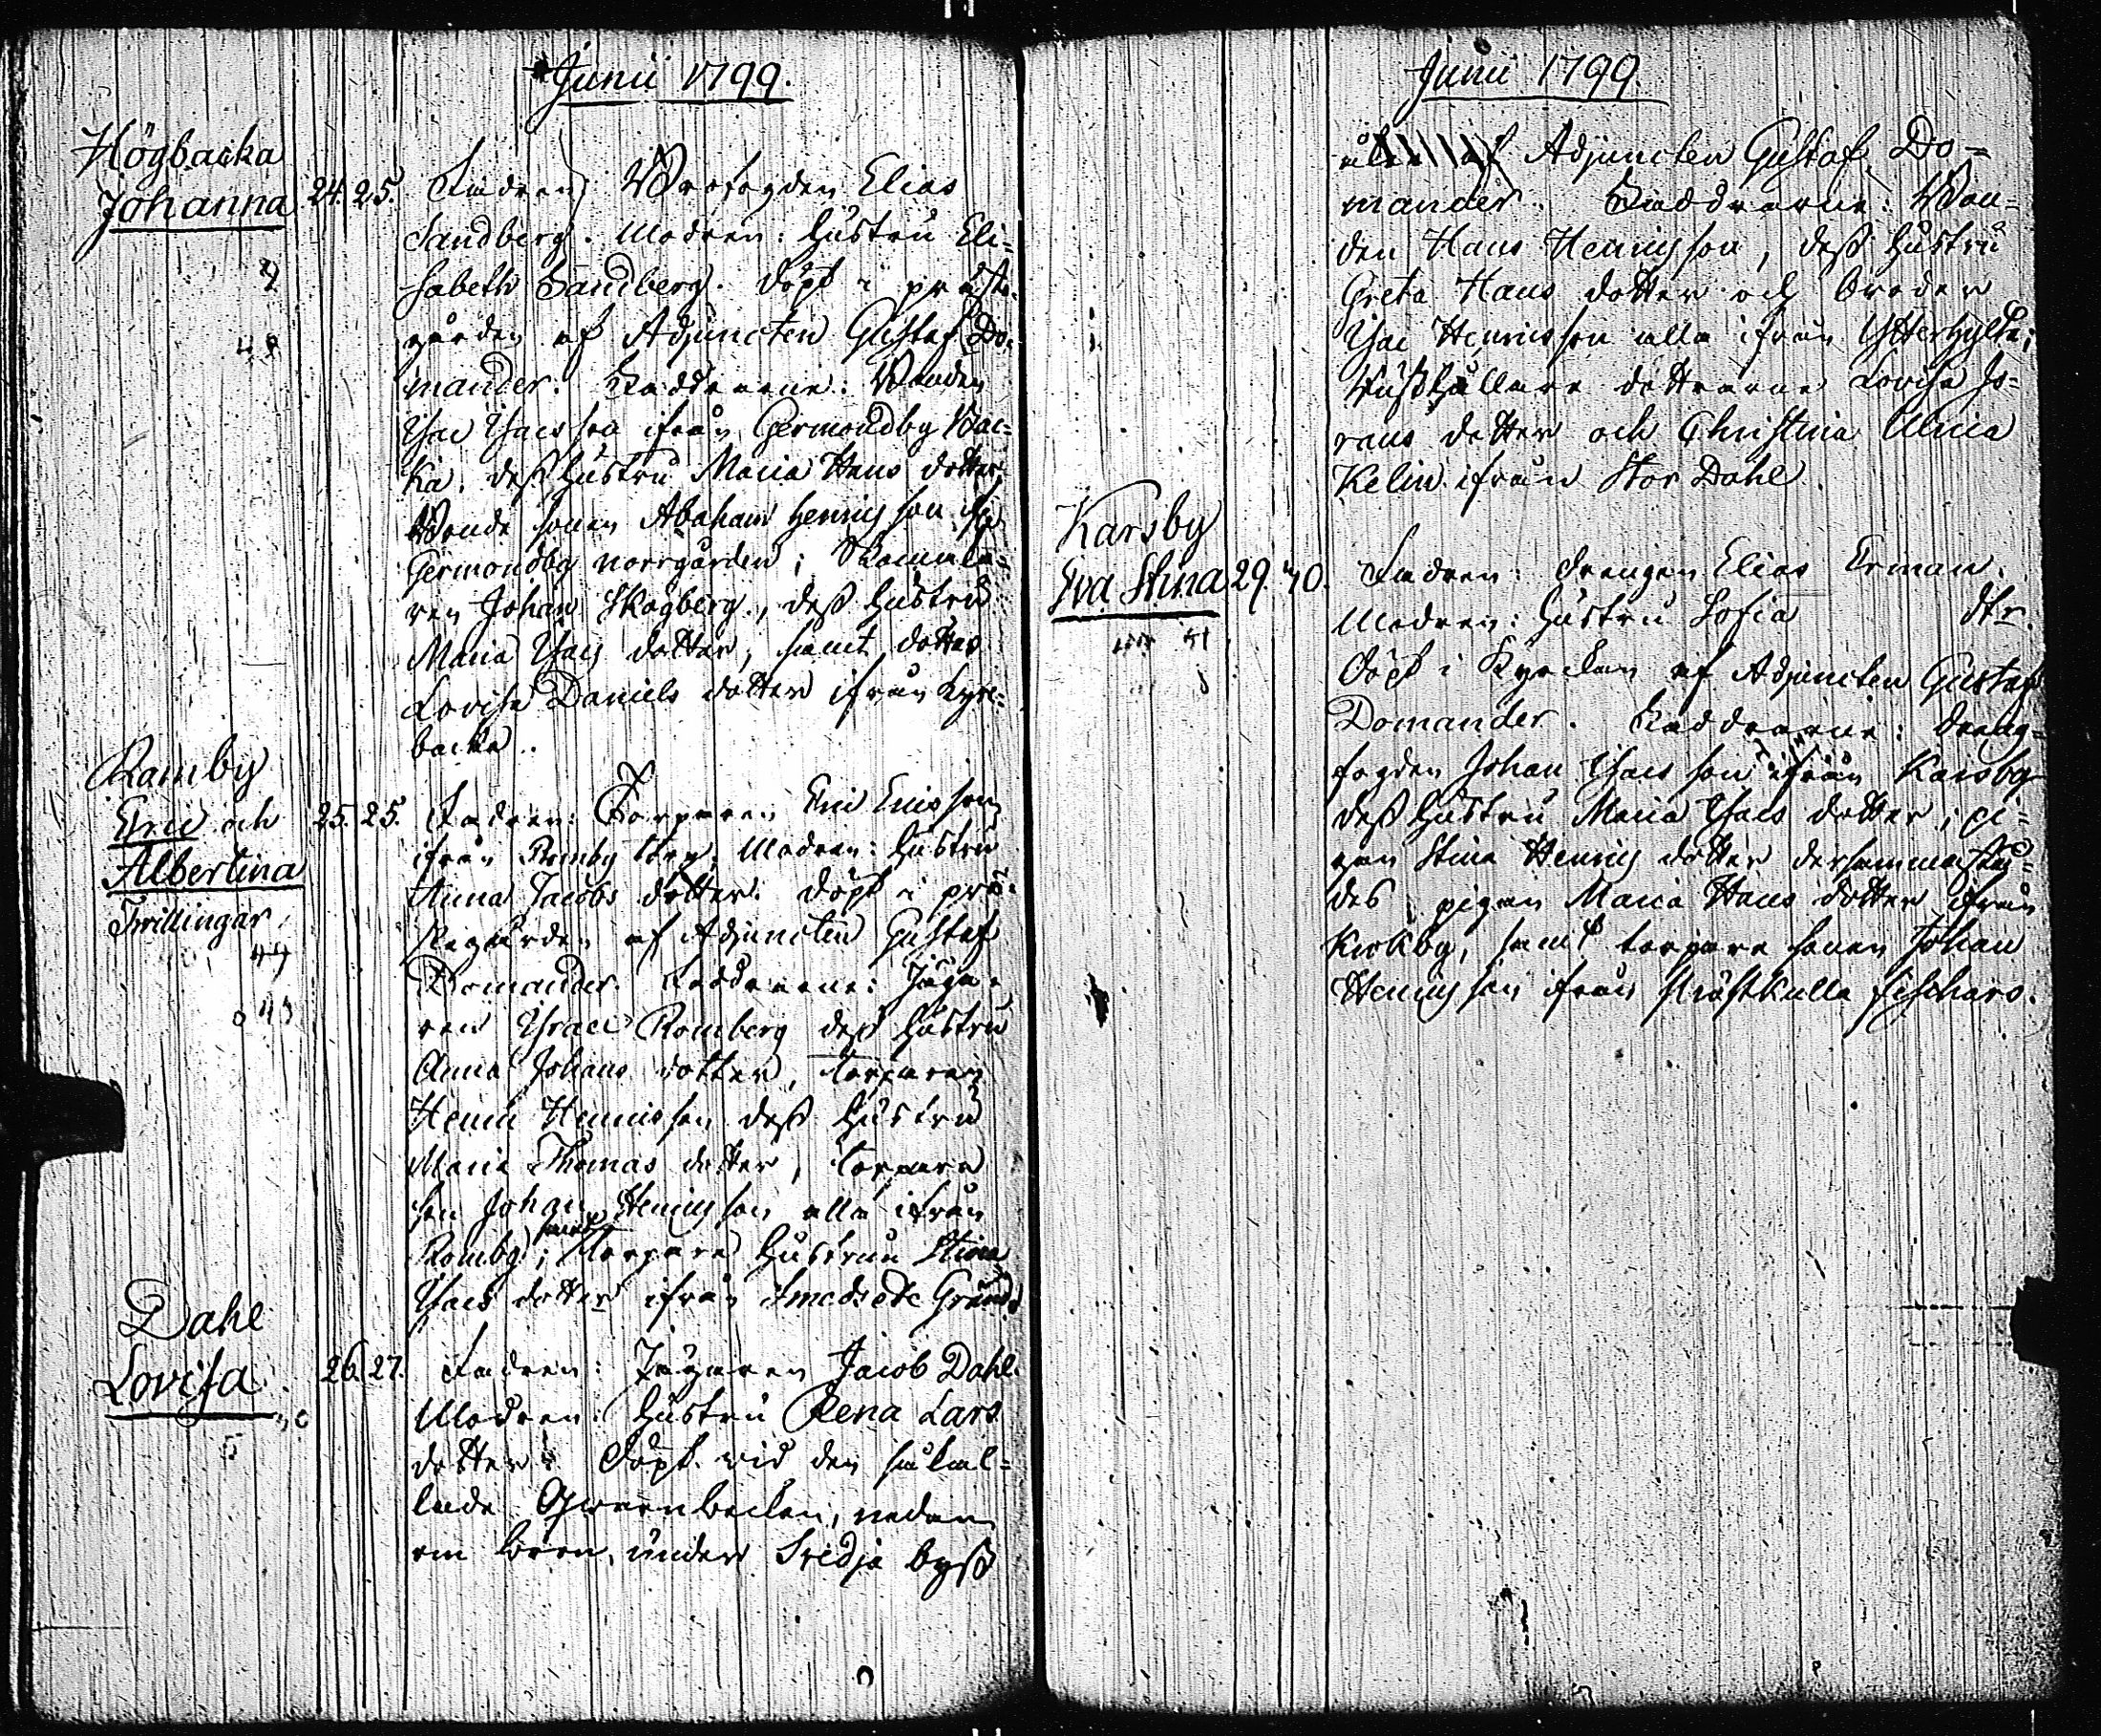 Junii 1799.
Högbacka
Johanna 24. 25. Fadren: Brofogden Elias
Sandberg. Modren: Hustru Eli=
sabeth Sandberg. döpt i präste=
gården af Adjuncten Gustaf Do=
mander. Faddrarne: Bonden
Isac Isacsson ifrån Germondby Bac=
ka, dess Hustru Maria Hans dotter
Bonde sonen Abraham Henricsson
Germondby norrgården;
ren Johan Skogberg, dess Hustru
Maria Isacs dotter, samt dotter
Lovisa Daniels dotter ifrån Kyrc=
backa.
Ramby
Eric och
Albertina
Twillingar
25. 25. Fadren: Torparen Eric Ericsson
ifrån Romby. Modren: Hustru
Anna Jacobs dotter. döpt i prä=
stegården af Adjuncten Gustaf
Domander. Faddrarne: Jäga=
ren Israel Romberg dess Hustru
Anna Johans dotter, Torparen
Henric Henricsson dess Hustru
Maria Thomas dotter, Torpare
son Johan Henricsson alla ifrån
Romby; samt Torpare Hustrun Stina
Isacs dotter ifrån Smedsede Grund.
Dahl
Lovisa 26. 27. Fadren: Jägaren Jacob Dahl.
Modren: Hustru Lena Lars
dotter. Döpt vid den så kal=
lade Qwarnbacken, nedan
om bron, under Svedja byss
Junii 1799.
af Adjuncten Gustaf Do=
mander. Faddrarne: Bon=
den Hans Henricsson, dess Hustru
Greta Hans dotter och broder
Isac Henricsson alla ifrån Ytterhylta;
Rusthållare döttrarne Lovisa Jö=
rans dotter och Christina Ulrica
Kelin ifrån Stor Dahl.
Karsby
Eva Stina 29. 30. Fadren: Drengen Elias Erman.
Modren: Hustru Sofia dtr.
Döpt i Kyrckan af Adjuncten Gustaf
Domander. Faddrarne: Dreng=
fogden Johan Isacsson ifrån Karsby
dess Hustru Maria Isacs dotter; pi=
gan Stina Henrics dotter dersammastä=
des, pigan Maria Hans dotter ifrån
Kirkby, samt torpare sonen Johan
Henricsson ifrån Kråkkulla Fischars.